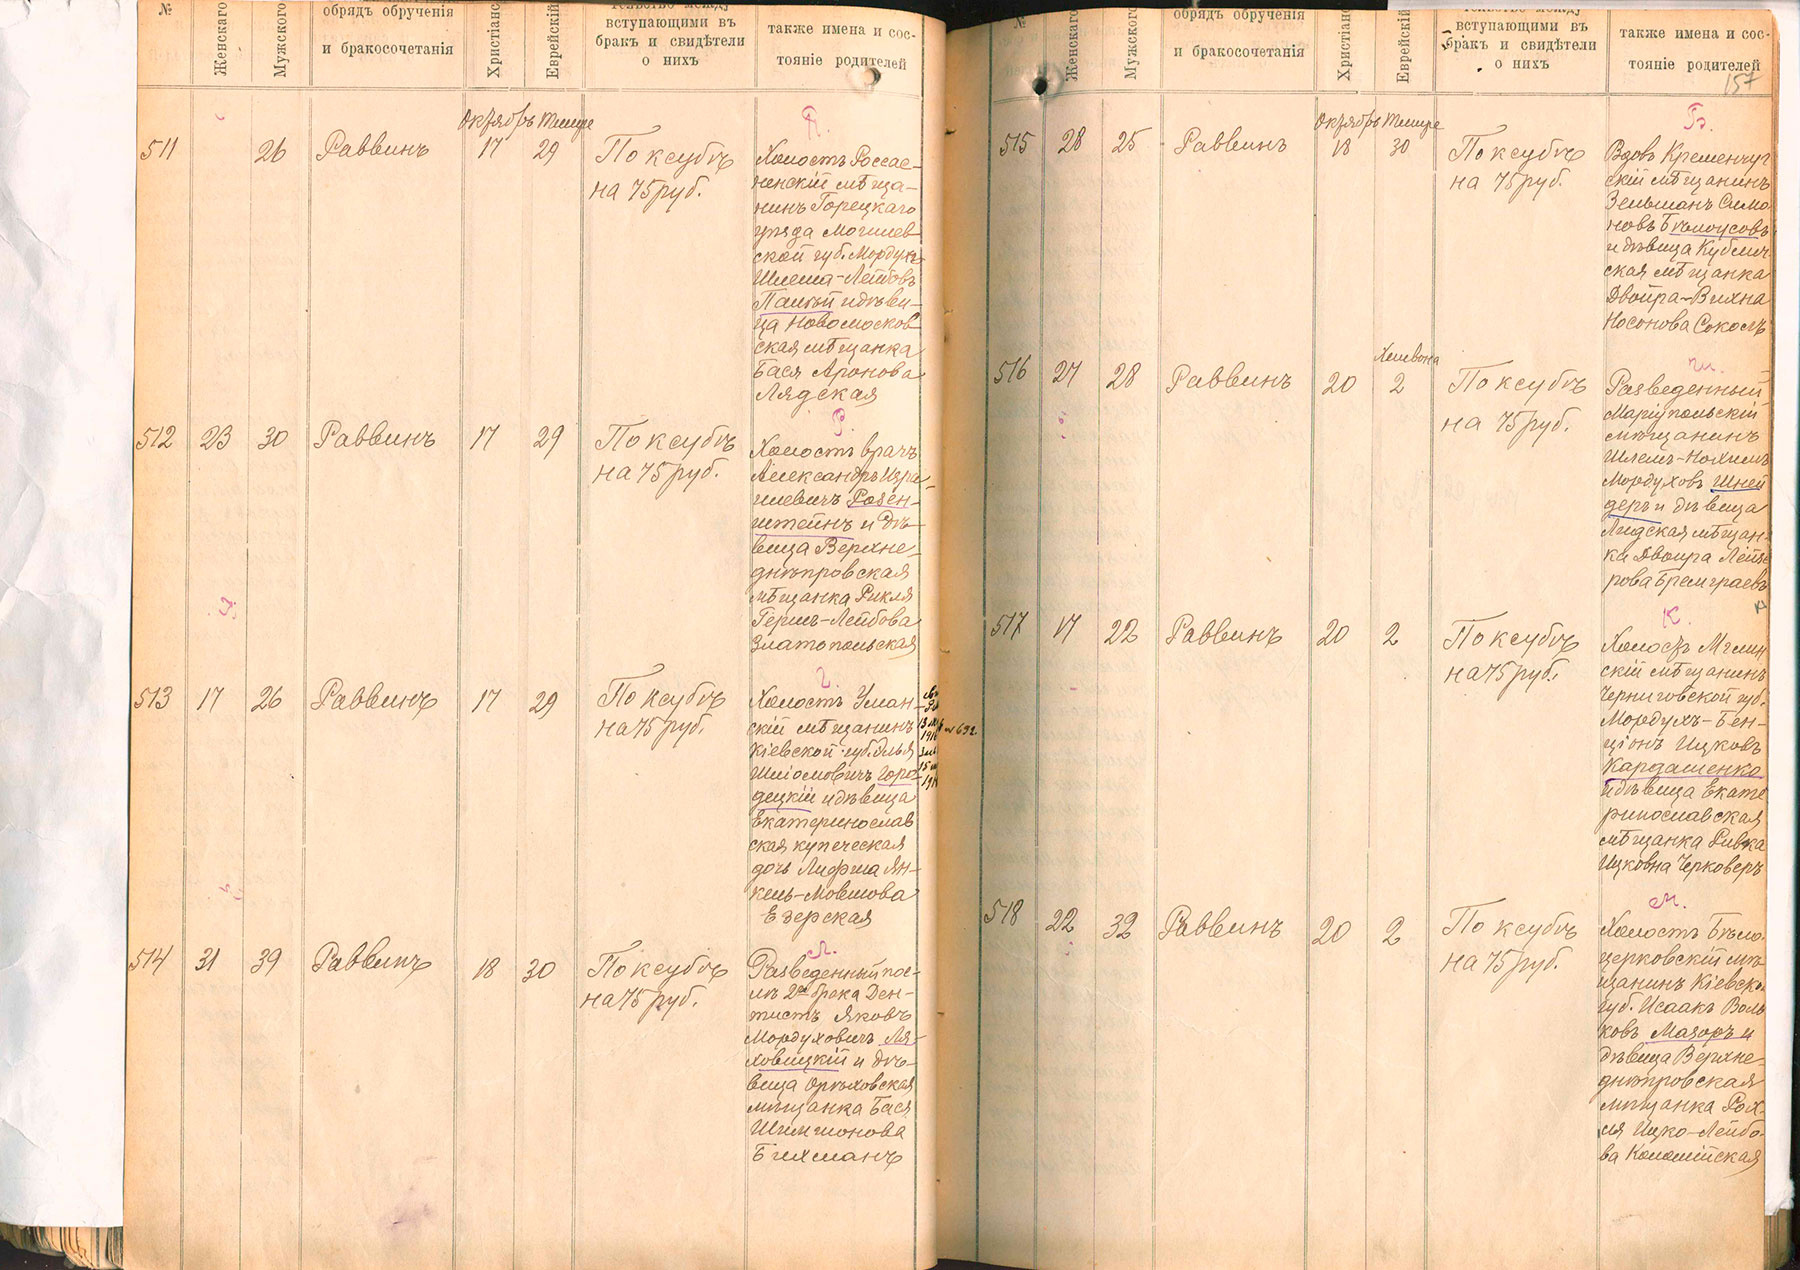 №
Женскаго
Мужского
обрядъ обрученія
и бракосочетанія
Христіанс
Еврейскій
вступающими въ
бракъ и свидѣтели
о нихъ
также имена и сос-
тояніе родителей
Октябрь Тишре
511
26
Раввинъ
17
29
По ксубѣ
на 75 руб.
П.
Холостъ Россас-
ненскій мѣща-
нинъ Горецкаго
уѣзда Могилев-
ской губ. Мордухъ
Шлема-Лейбовъ
и дѣви-
ца Новомосков
ская мѣщанка
Бася Аронова
Лядская
512
23
30
Раввинъ
17
29
По ксубѣ
на 75 руб.
Р.
Холостъ врачъ
Александръ Изра-
илевичъ Розен-
штейнъ и дѣ-
вица Верхне-
днѣпровская
мѣщанка Рикля
Герш-Лейбова
Златопольская
513
17
26
Раввинъ
17
29
По ксубѣ
на 75 руб.
Г.
Холостъ Уман-
скій мѣщанинъ
Кіевской губ. Илья
Шліомовичъ Горо-
децкій и дѣвица
Екатеринослав
ская купеческая
дочь Лифша Ян-
кель-Мовшова
Езерская
№ 632
514
31
39
Раввинъ
18
30
По ксубѣ
на 75 руб.
Л.
Разведенный пос-
лѣ 2го брака Ден-
тистъ Яковъ
Мордуховичъ Ля-
ховицкій и дѣ-
вица Орѣховская
мѣщанка Бася
Шимшонова
Бихманъ
№
Женскаго
Мужского
обрядъ обрученія
и бракосочетанія
Христіанс
Еврейскій
вступающими въ
бракъ и свидѣтели
о нихъ
также имена и сос-
тояніе родителей
157
Октябрь Тишре
515
28
25
Раввинъ
18
30
По ксубѣ
на 75 руб.
Б.
Вдовъ Кременчуг
скій мѣщанинъ
Зельманъ Симо
новъ Бѣлоусовъ
и дѣвица Кублич
ская мѣщанка
Двойра-Вихна
Носонова Соколъ
Хешвона
516
27
28
Раввинъ
20
2
По ксубѣ
на 75 руб.
Ш.
Разведенный
Маріупольскій
мѣщанинъ
Шлемъ-Нохимъ
Мордуховъ Шней
деръ и дѣвица
Лидская мѣщан-
ка Двоира Лейзе
517
17
22
Раввинъ
20
2
По ксубѣ
на 75 руб.
К.
Холостъ Мглин
скій мѣщанинъ
Черниговской губ.
Мордухъ-Бен-
ціонъ Ицковъ
Кардашенко
и дѣвица Екате
ринославская
мѣщанка Ривка
Ицковна Черковеръ
518
22
32
Раввинъ
20
2
По ксубѣ
на 75 руб.
М.
Холостъ Бѣло-
церковскій мѣ-
щанинъ Кіевско
губ. Исаакъ Воль
ковъ Мазоръ и
дѣвица Верхне-
днѣпровская
мѣщанка Рох-
ля Ицко-Лейбо-
ва Коломійская